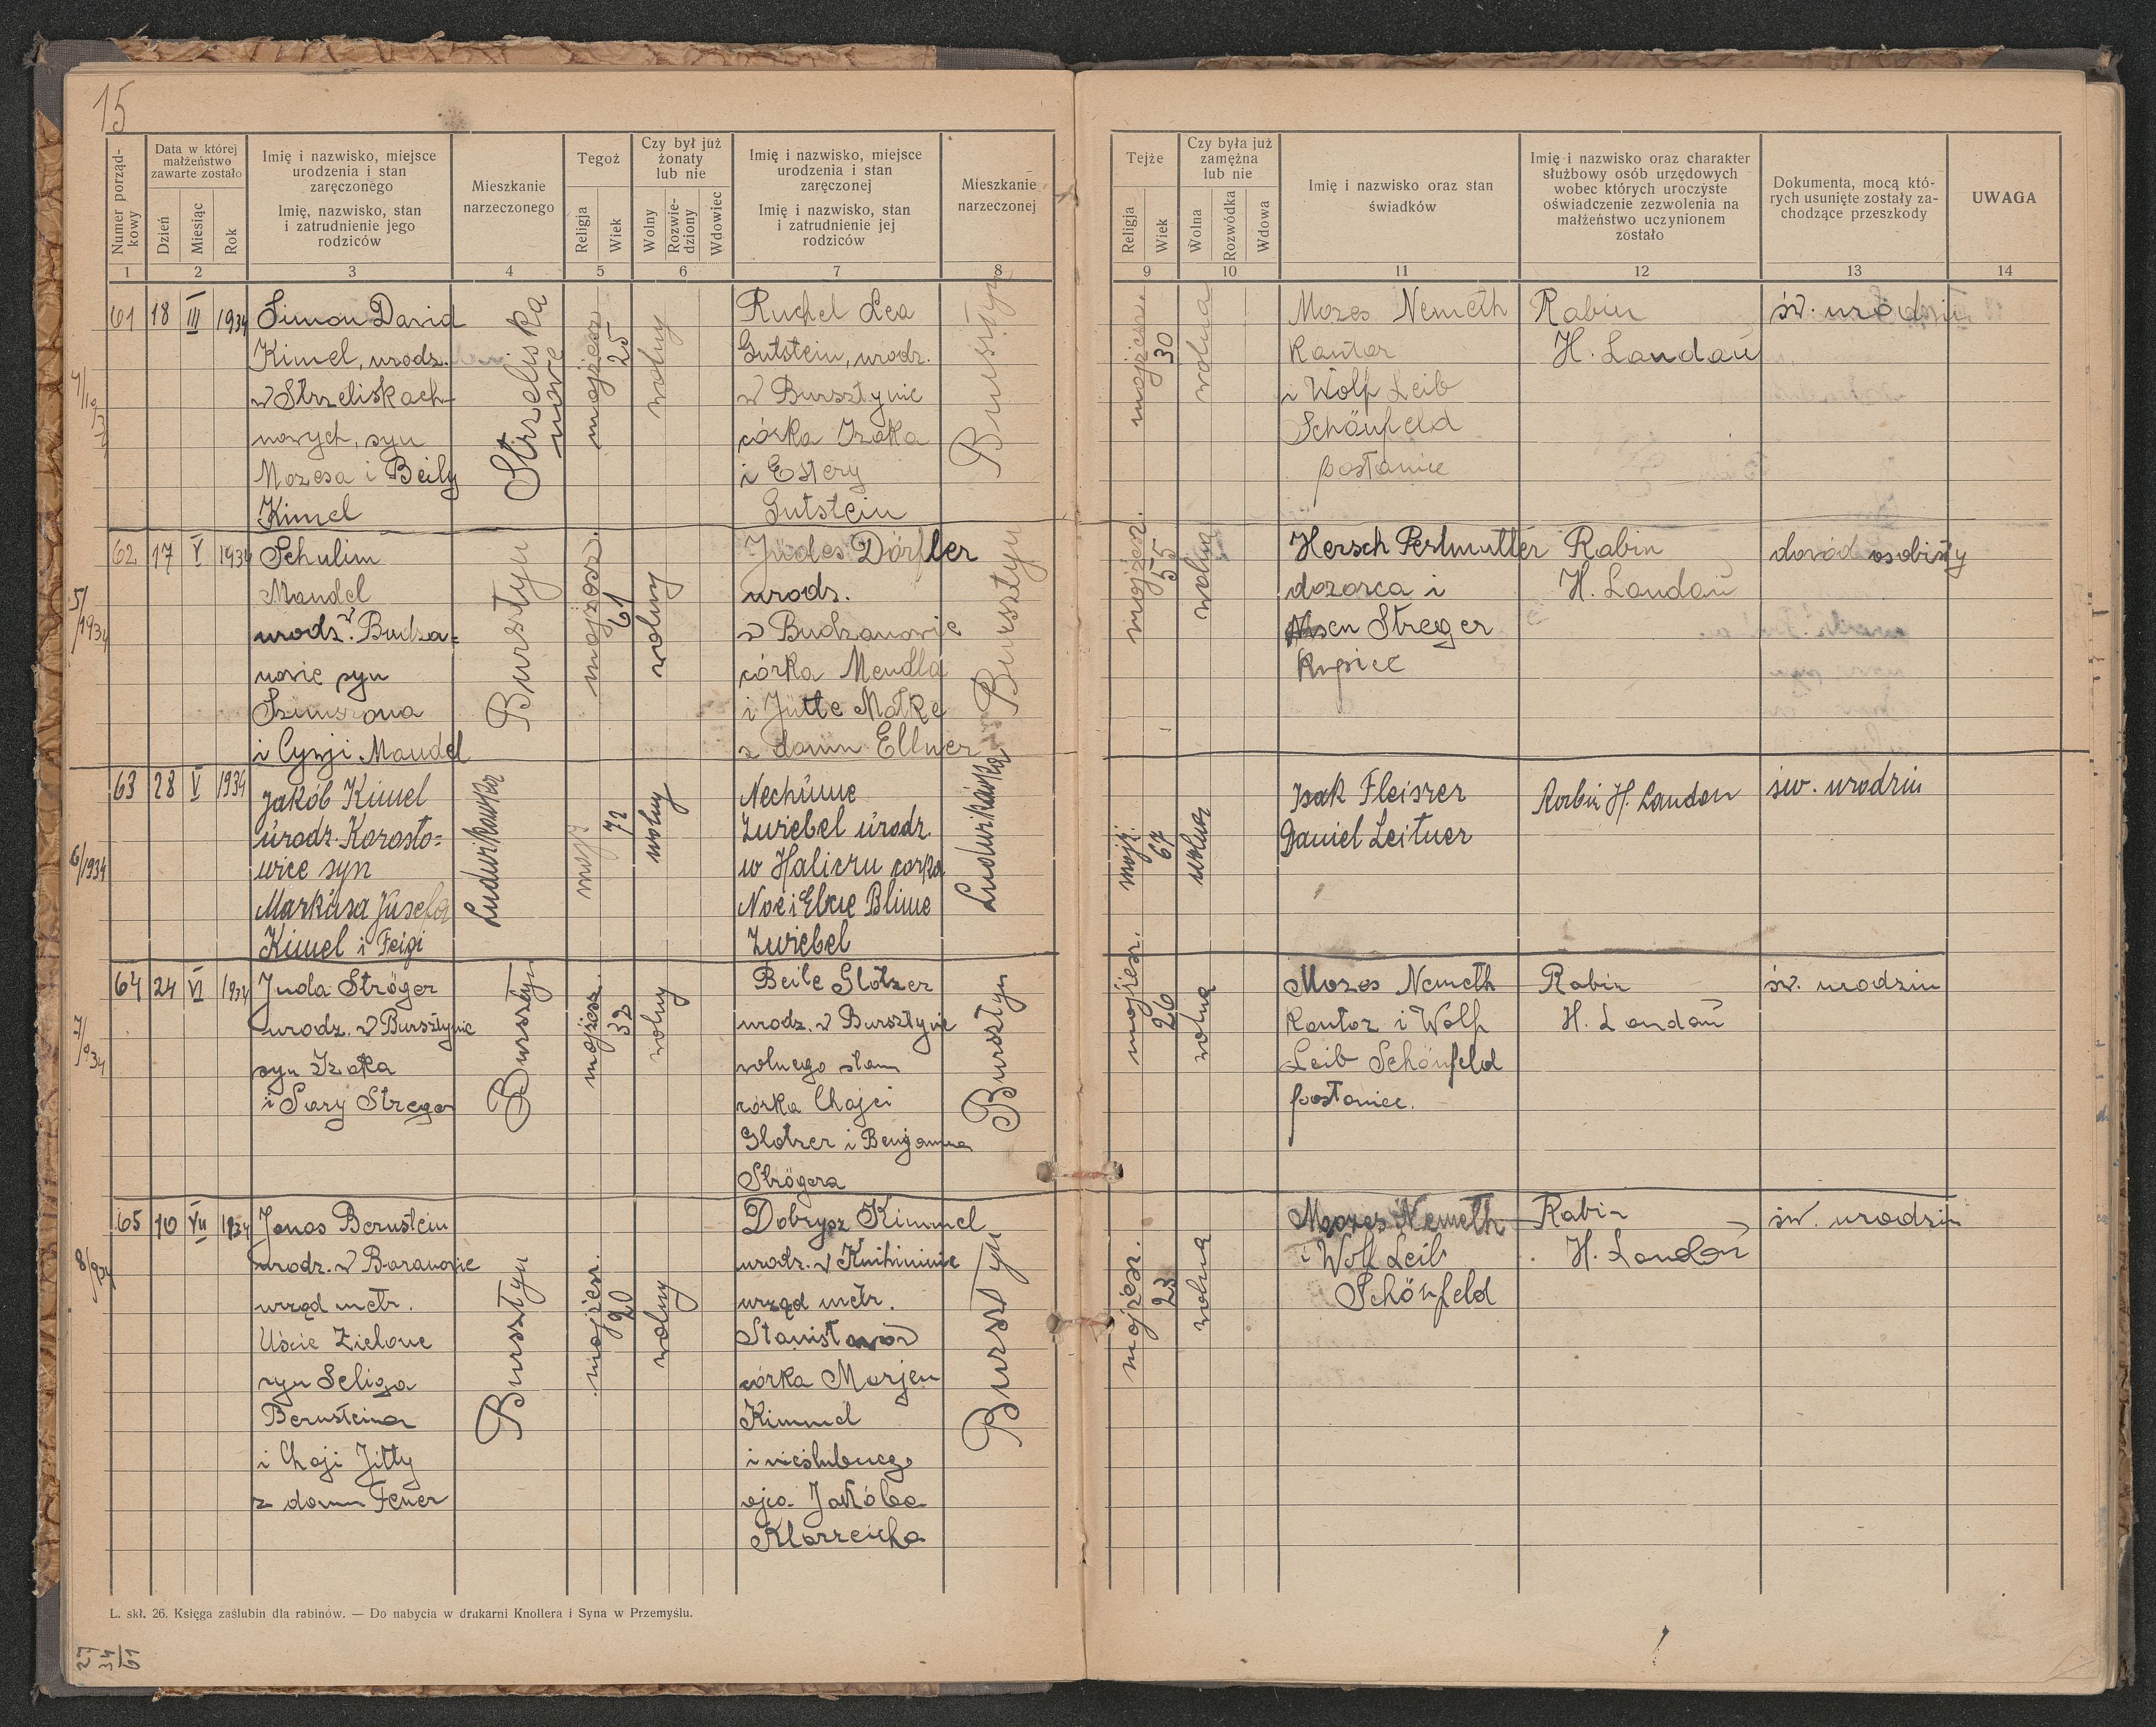 15
Numer porząd-
kowy
Data w której
małżeństwo
zawarte zostało
Dzień
Miesiąc
Rok
Imię i nazwisko, miejsce
urodzenia i stan
zaręczonego
Imię, nazwisko, stan
i zatrudnienie jego
rodziców
Mieszkanie
narzeczonego
Tegoż
Religja
Wiek
Czy był już
żonaty
lub nie
Wolny
Rozwie-
dziony
Wdowiec
Imię i nazwisko, miejsce
urodzenia i stan
zaręczonej
Imię i nazwisko, stan
i zatrudnienie jej
rodziców
Mieszkanie
narzeczonej
Tejże
Religja
Wiek
Czy była już
zamężna
lub nie
Wolna
Rozwódka
Wdowa
Imię i nazwisko oraz stan
świadków
Imię i nazwisko oraz charakter
służbowy osób urzędowych
wobec których uroczyste
oświadczenie zezwolenia na
małżeństwo uczynionem
zostało
Dokumenta, mocą któ-
rych usunięte zostały za-
chodzące przeszkody
UWAGA
1 2 3 4 5 6 7 8 9 10 11 12 13 14
61 18 III 1934
Simon David
Kimel, urodz.
w Strzeliskach
nowych, syn
Mozesa i Beily
Kimel
Strzeliska
nowe
mojżesz
25
wolny
Ruchel Lea
Gutstein, urodz.
w Bursztynie
córka Izaka
i Estery
Gutstein
Bursztyn
mojżesz.
30
wolna
Mozes Nemeth
Kantor
i Wolf Leib
Schönfeld
posłaniec
Rabin
H. Landau
św. urodzin
62 17 V 1934
5/1934
Schulim
Mandel
urodz. w Budza=
nowie syn
Szimszona
i Cywji Mandel
Bursztyn
mojżesz.
61
wolny
Judes Dörfler
urodz.
w Budzanowie
córka Mendla
i Jütte Matke
z domu Ellner
Bursztyn
mojżesz.
55
wolna
Hersch Perlmutter
dozorca i
Streger
Kupiec
Rabin
H. Landau
dowód osobisty
63 28 V 1934
6/1934
Jakób Kimel
urodz. Korosto=
wice syn
Markusa Jusefa
Kimel i Feigi
Ludwikówka
mojż
72
wolny
Nechume
Zwiebel urodz.
w Haliczu córka
Noe i Elcie Blime
Zwiebel
Ludwikówka
mojż.
67
wolna
Isak Fleiszer
Daniel Leitner
Rabin H. Landau
św. urodzin
64 24 VI 1934
7/934
Juda Ströger
urodz. w Bursztynie
syn Izaka
i Sary Streger
Bursztyn
mojżesz.
32
wolny
Beile Glotzer
urodz. w Bursztynie
wolnego stanu
córka Chajci
Glotzer i Benjamina
Strögera
Bursztyn
mojżesz.
26
wolna
Mozes Nemeth
Kantor i Wolf
Leib Schönfeld
posłaniec.
Rabin
H. Landau
św. urodzin
65 10 VII 1934
8/934
Jonas Bernstein
urodz. w Baranowie
urząd metr.
Uście Zielone
syn Seliga
Bernsteina
i Chaji Jitty
z domu Feuer
Bursztyn
mojżesz.
20
wolny
Dobrysz Kimmel
urodz. w Knihininie
urząd metr.
Stanisławów
córka Marjem
Kimmel
i nieślubnego
ojca Jakóba
Klarreicha
Bursztyn
mojżesz.
23
wolna
Mozes Nemeth
i Wolf Leib
Schönfeld
Rabin
H. Landau
św. urodzin
L. skł. 26. Księga zaślubin dla rabinów. — Do nabycia w drukarni Knollera i Syna w Przemyślu.
27
34
61